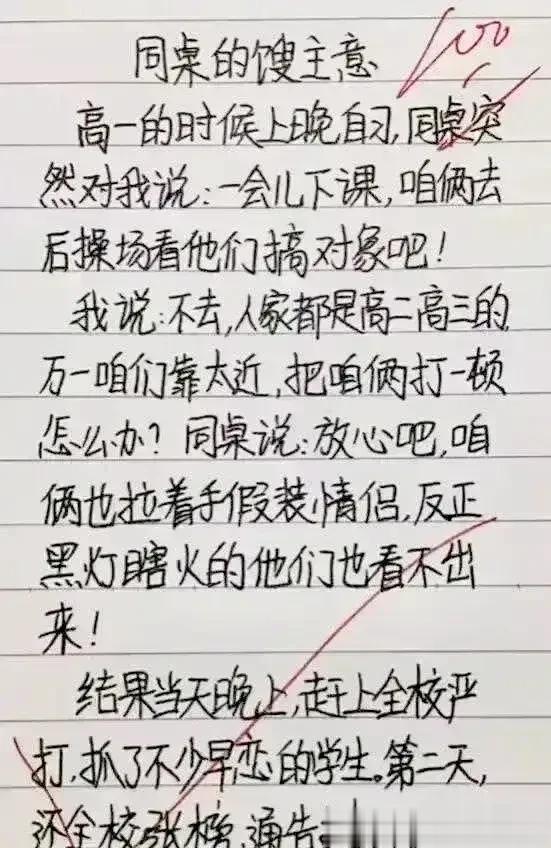 同桌的馊主意
100
高一的时候上晚自习,同桌突
然对我说:一会儿下课,咱俩去
后操场看他们搞对象吧!
我说:不去,人家都是高二高三的,
万一咱们靠太近,把咱俩打一顿
怎么办?同桌说:放心吧,咱
俩也拉着手假装情侣,反正
黑灯瞎火的他们也看不出
来!
结果当天晚上,赶上全校严
打,抓了不少早恋的学生。第二天,
还全校张榜,通告